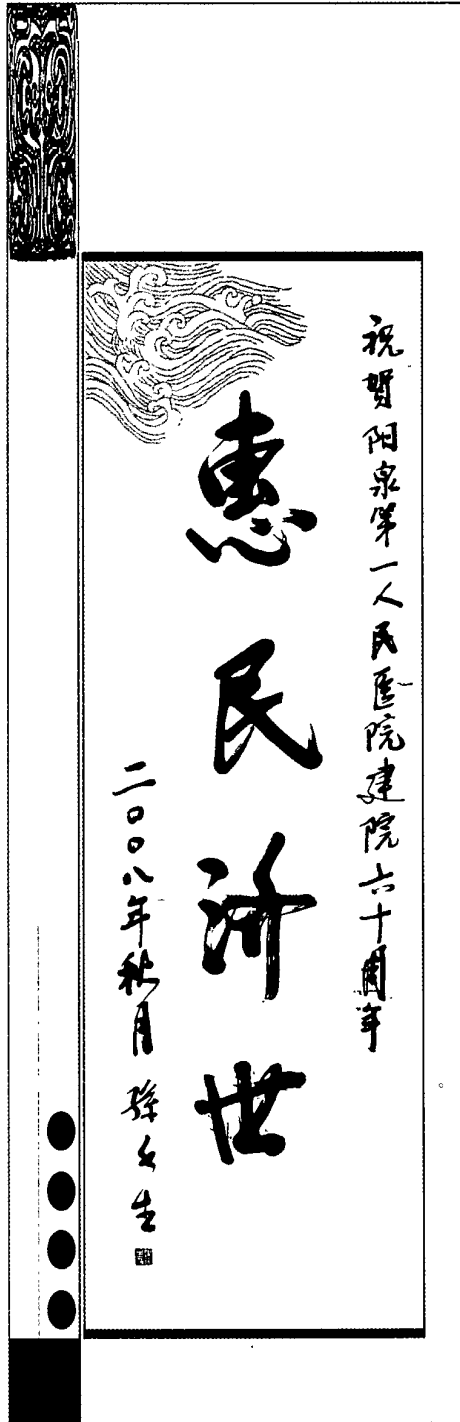 祝贺阳泉第一人民医院建院六十周年
惠民济世
二〇〇八年秋月 孫
生